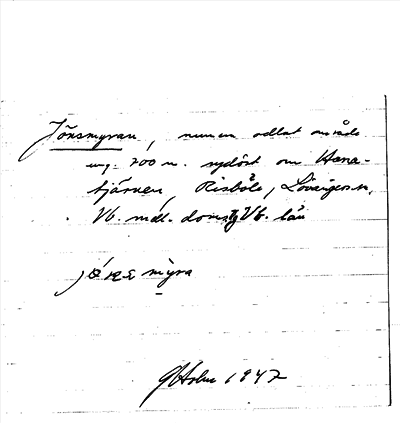 Jönsmyran, numera odlat område
ung. 700 m. sydöst om Hara-
tjärnen, Risböle, Lövångers sn.
Vb. mell. doms. Vb. län
myra
G Holm 1947